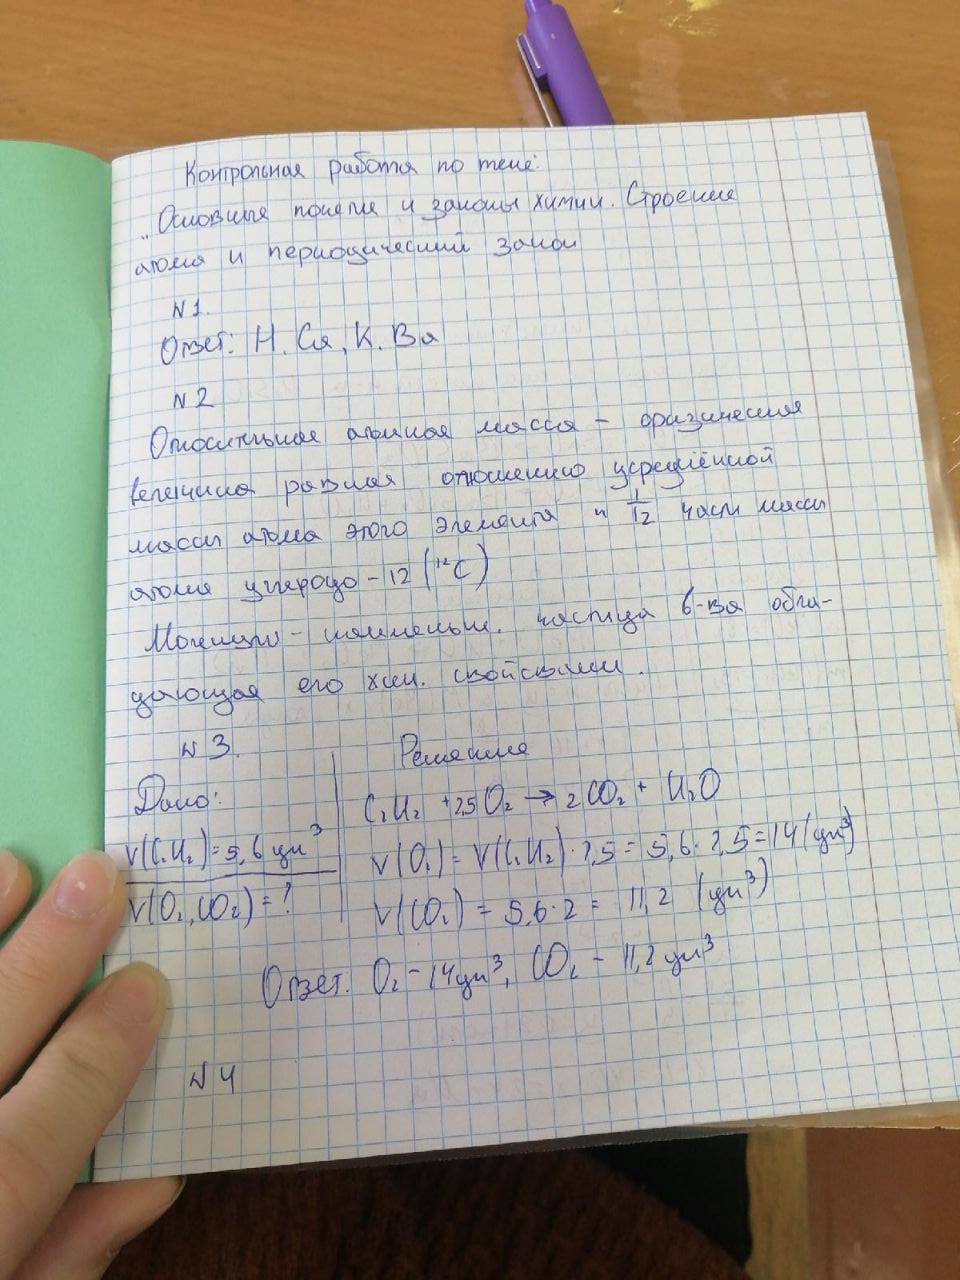 Контрольная работа по теме:
„Основные понятия и законы химии. Строение
атома и периодический закон
N1.
Ответ: H, Ca, K, Ba
N2
Относительная атомная масса – физическая
величина равная отношению усреднённой
массы атома этого элемента к 1/12 части массы
атома углерода – 12 (¹²C)
Молекула – наименьш. частица в-ва обла-
дающая его хим. свойствами.
N 3.
Дано:
V(C₂H₂) = 5,6 дм³
V(O₂, CO₂) = ?
Решение
C₂H₂ + 2,5O₂ → 2CO₂ + H₂O
V(O₂) = V(C₂H₂) · 2,5 = 5,6 · 2,5 = 14 (дм³)
V(CO₂) = 5,6 · 2 = 11,2 (дм³)
Ответ. O₂ – 14 дм³, CO₂ – 11,2 дм³
N 4